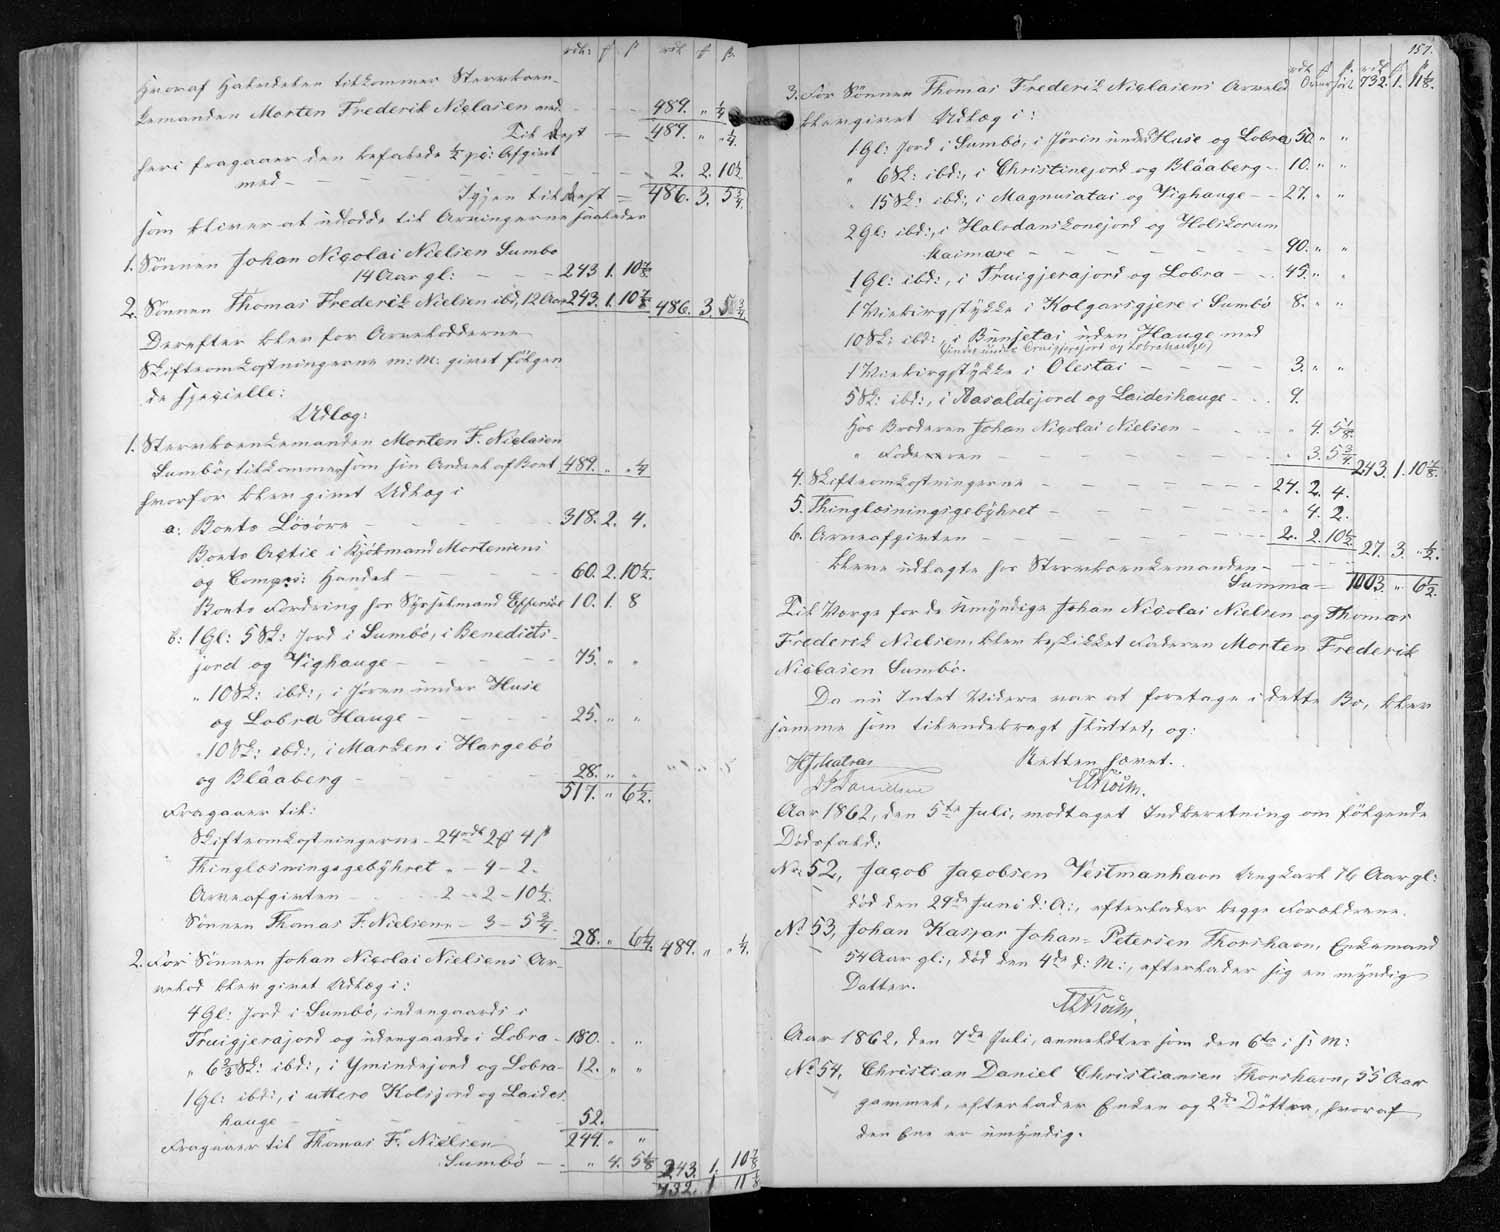 rdl: ƒ ß rdl ƒ ß.
Hvoraf Halvdelen tilkommer Stervboen-
kemanden Morten Frederik Niclasen med — — 489. „ ¼
Til Rest = 489. „ „ ¼.
heri fragaaer den befalede ½ pC: Afgivt
med — — — — — 2. 2. 10½
Igjen til Rest = 486. 3. 5¾.
som bliver at udlodde til Arvingerne saaledes
1. Sønnen Johan Nicolai Nielsen Sumbø
14 Aar gl: — — 243 1. 10⅞
2. Sønnen Thomas Frederik Nielsen ibd, 12 Aar 243. 1. 10⅞ 486. 3. 5¾.
Derefter blev for Arvelodderne
Skifteomkostningerne m: M: givet følgen
de specielle:
Udlæg:
1. Stervboenkemanden Morten F. Niclasen
Sumbø, tilkommer som sin Andeel af Boet 489. „ „ ¼
hvorfor blev givet Udlæg i
a: Boets Løsøre — — — 318. 2. 4.
Boets Actie i Kjøbmand Mortensens
og Compag: Handel — — 60. 2. 10½.
Boets Fordring hos Sysselmand Effersøe 10. 1. 8
b: 1 Gl: 5 Sk: Jord i Sumbø, i Benedicts-
jord og Vighauge — — — 75. „ „
„ 10 Sk: ibd:, i Jøren under Huse
og Lobra Hauge — — — 25. „ „
„ 10 Sk: ibd:, i Marken i Hørgebø
og Blåaberg — — — 28. „ „
517. „ 6½.
Fragaaer til:
Skifteomkostningerne — 24 rdl 2 ƒ 4 ß
Thinglæsningsgebyhret „ — 4 — 2.
Arveafgivten — — 2 — 2 — 10½.
Sønnen Thomas F. Nielsen „ — 3 — 5¾.
28. „ 6¼. 489. „ „ ¼.
2. For Sønnen Johan Nicolai Nielsens Ar-
velod blev givet Udlæg i:
4 Gl: Jord i Sumbø, indengaards i
Truigjerajord og udengaards i Lobra — 180. „ „
„ 6⅔ Sk: ibd:, i Ymindejord og Lobra — 12. „ „
1 Gl: ibd:, i uttere Kolsjord og Laides
hauge — — — — 52.
244. „ „
Fragaaer til Thomas F. Nielsen
Sumbø — „ 4. 5⅛ 243. 1. 10⅞
732. 1 11⅛
157.
rdl ƒ ß. rdl ƒ ß.
Overført 732. 1. 11⅛.
3. For Sønnen Thomas Frederik Niclasens Arvelod
blev givet Udlæg i:
1 Gl: Jord i Sumbø, i Jørin under Huse og Lobra 50. „ „
„ 6 Sk: ibd:, i Christinejord og Blåaberg — 10. „ „
„ 15 Sk: ibd:, i Magnusatai og Vighauge — 27. „ „
2 Gl: ibd:, i Halvdanskonejord og Holskorum
Maimare — — — — 90. „ „
1 Gl: ibd:, i Truigjerajord og Lobra — 45. „ „
1 Virkirgstykke i Kolgarsgjere i Sumbø 8. „ „
10 Sk: ibd:, i Bunsetai uden Hauge med
(findes under Truigjerajord og Lobrahauge)
1 Virkirgstykke i Olestai — — — 3. „ „
5 Sk: ibd:, i Aasaldejord og Laideshauge — 9.
Hos Broderen Johan Nicolai Nielsen — — „ 4. 5⅛.
„ Faderen — — — „ 3. 5¾. 243. 1. 10⅞.
4. Skifteomkostningerne — — — 24. 2. 4.
5. Thinglæsningsgebyhret — — — „ 4. 2.
6. Arveafgivten — — — 2. 2. 10½ 27. 3. „ ½.
bleve udlagte hos Stervboenkemanden —
Summa — 1003. „ 6½.
Til Værge for de Umyndige Johan Nicolai Nielsen og Thomas
Frederik Nielsen, blev beskikket Faderen Morten Frederik
Niclasen Sumbø.
Da nu Intet Videre var at foretage i dette Bo, blev
samme som tilendebragt sluttet, og:
Retten hævet.
HJMatras
Danielsen
Aar 1862, den 5te Juli, modtaget Indberetning om følgende
Dødsfald:
No 52, Jacob Jacobsen Vestmanhavn Ungkarl 76 Aar gl:
død den 29de Juni d: A:, efterlader begge Forældrene.
No 53, Johan Kaspar Johan-Petersen Thorshavn, Enkemand
54 Aar gl:, død den 4de d: M:, efterlader sig en myndig
Datter.
Aar 1862, den 7de Juli, anmeldtes som den 6te i s: M:
No 54, Christian Daniel Christiansen Thorshavn, 55 Aar
gammel, efterlader Enken og 2de Døttre, hvoraf
den Ene er umyndig.